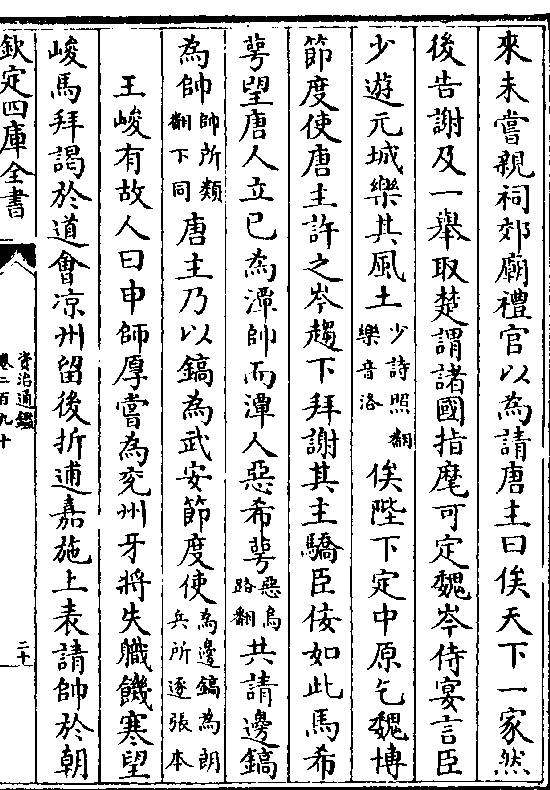 來未嘗親祠郊廟禮官以為請唐主曰俟天下一家然
後告謝及一舉取楚謂諸國指麾可定魏岑侍宴言臣
少遊元城樂其風土少詩照翻樂音洛俟陛下定中原乞魏博
節度使唐主許之岑趨下拜謝其主驕臣佞如此馬希
萼望唐人立已為潭帥而潭人惡希萼惡烏路翻共請邊鎬
為帥帥所類翻下同唐主乃以鎬為武安節度使為邊鎬為朗兵所逐張本
王峻有故人曰申師厚嘗為兖州牙將失職饑寒望
峻馬拜謁於道會凉州留後折逋嘉施上表請帥於朝
欽定四庫全書
資治通鑑
卷二百九十
二十